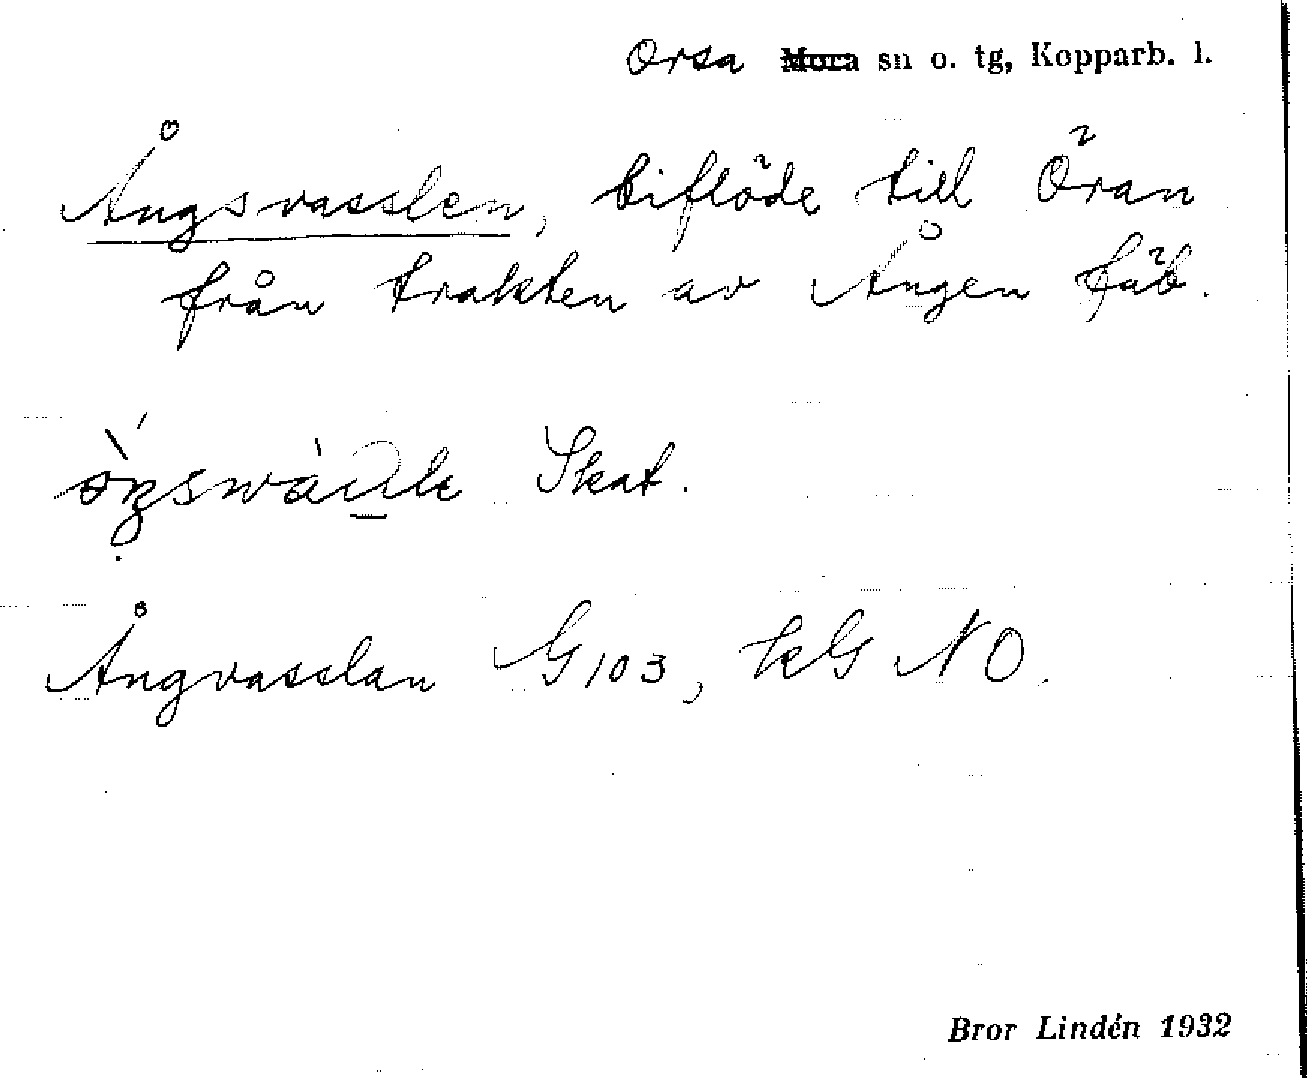 Orsa ~~Mora~~ sn o. tg, Kopparb. l.
Ångsvasslen, biflöde till Öran
från trakten av Ången fäb.
Skat.
Ångvasslan G103, kG NO.
Bror Lindén 1932